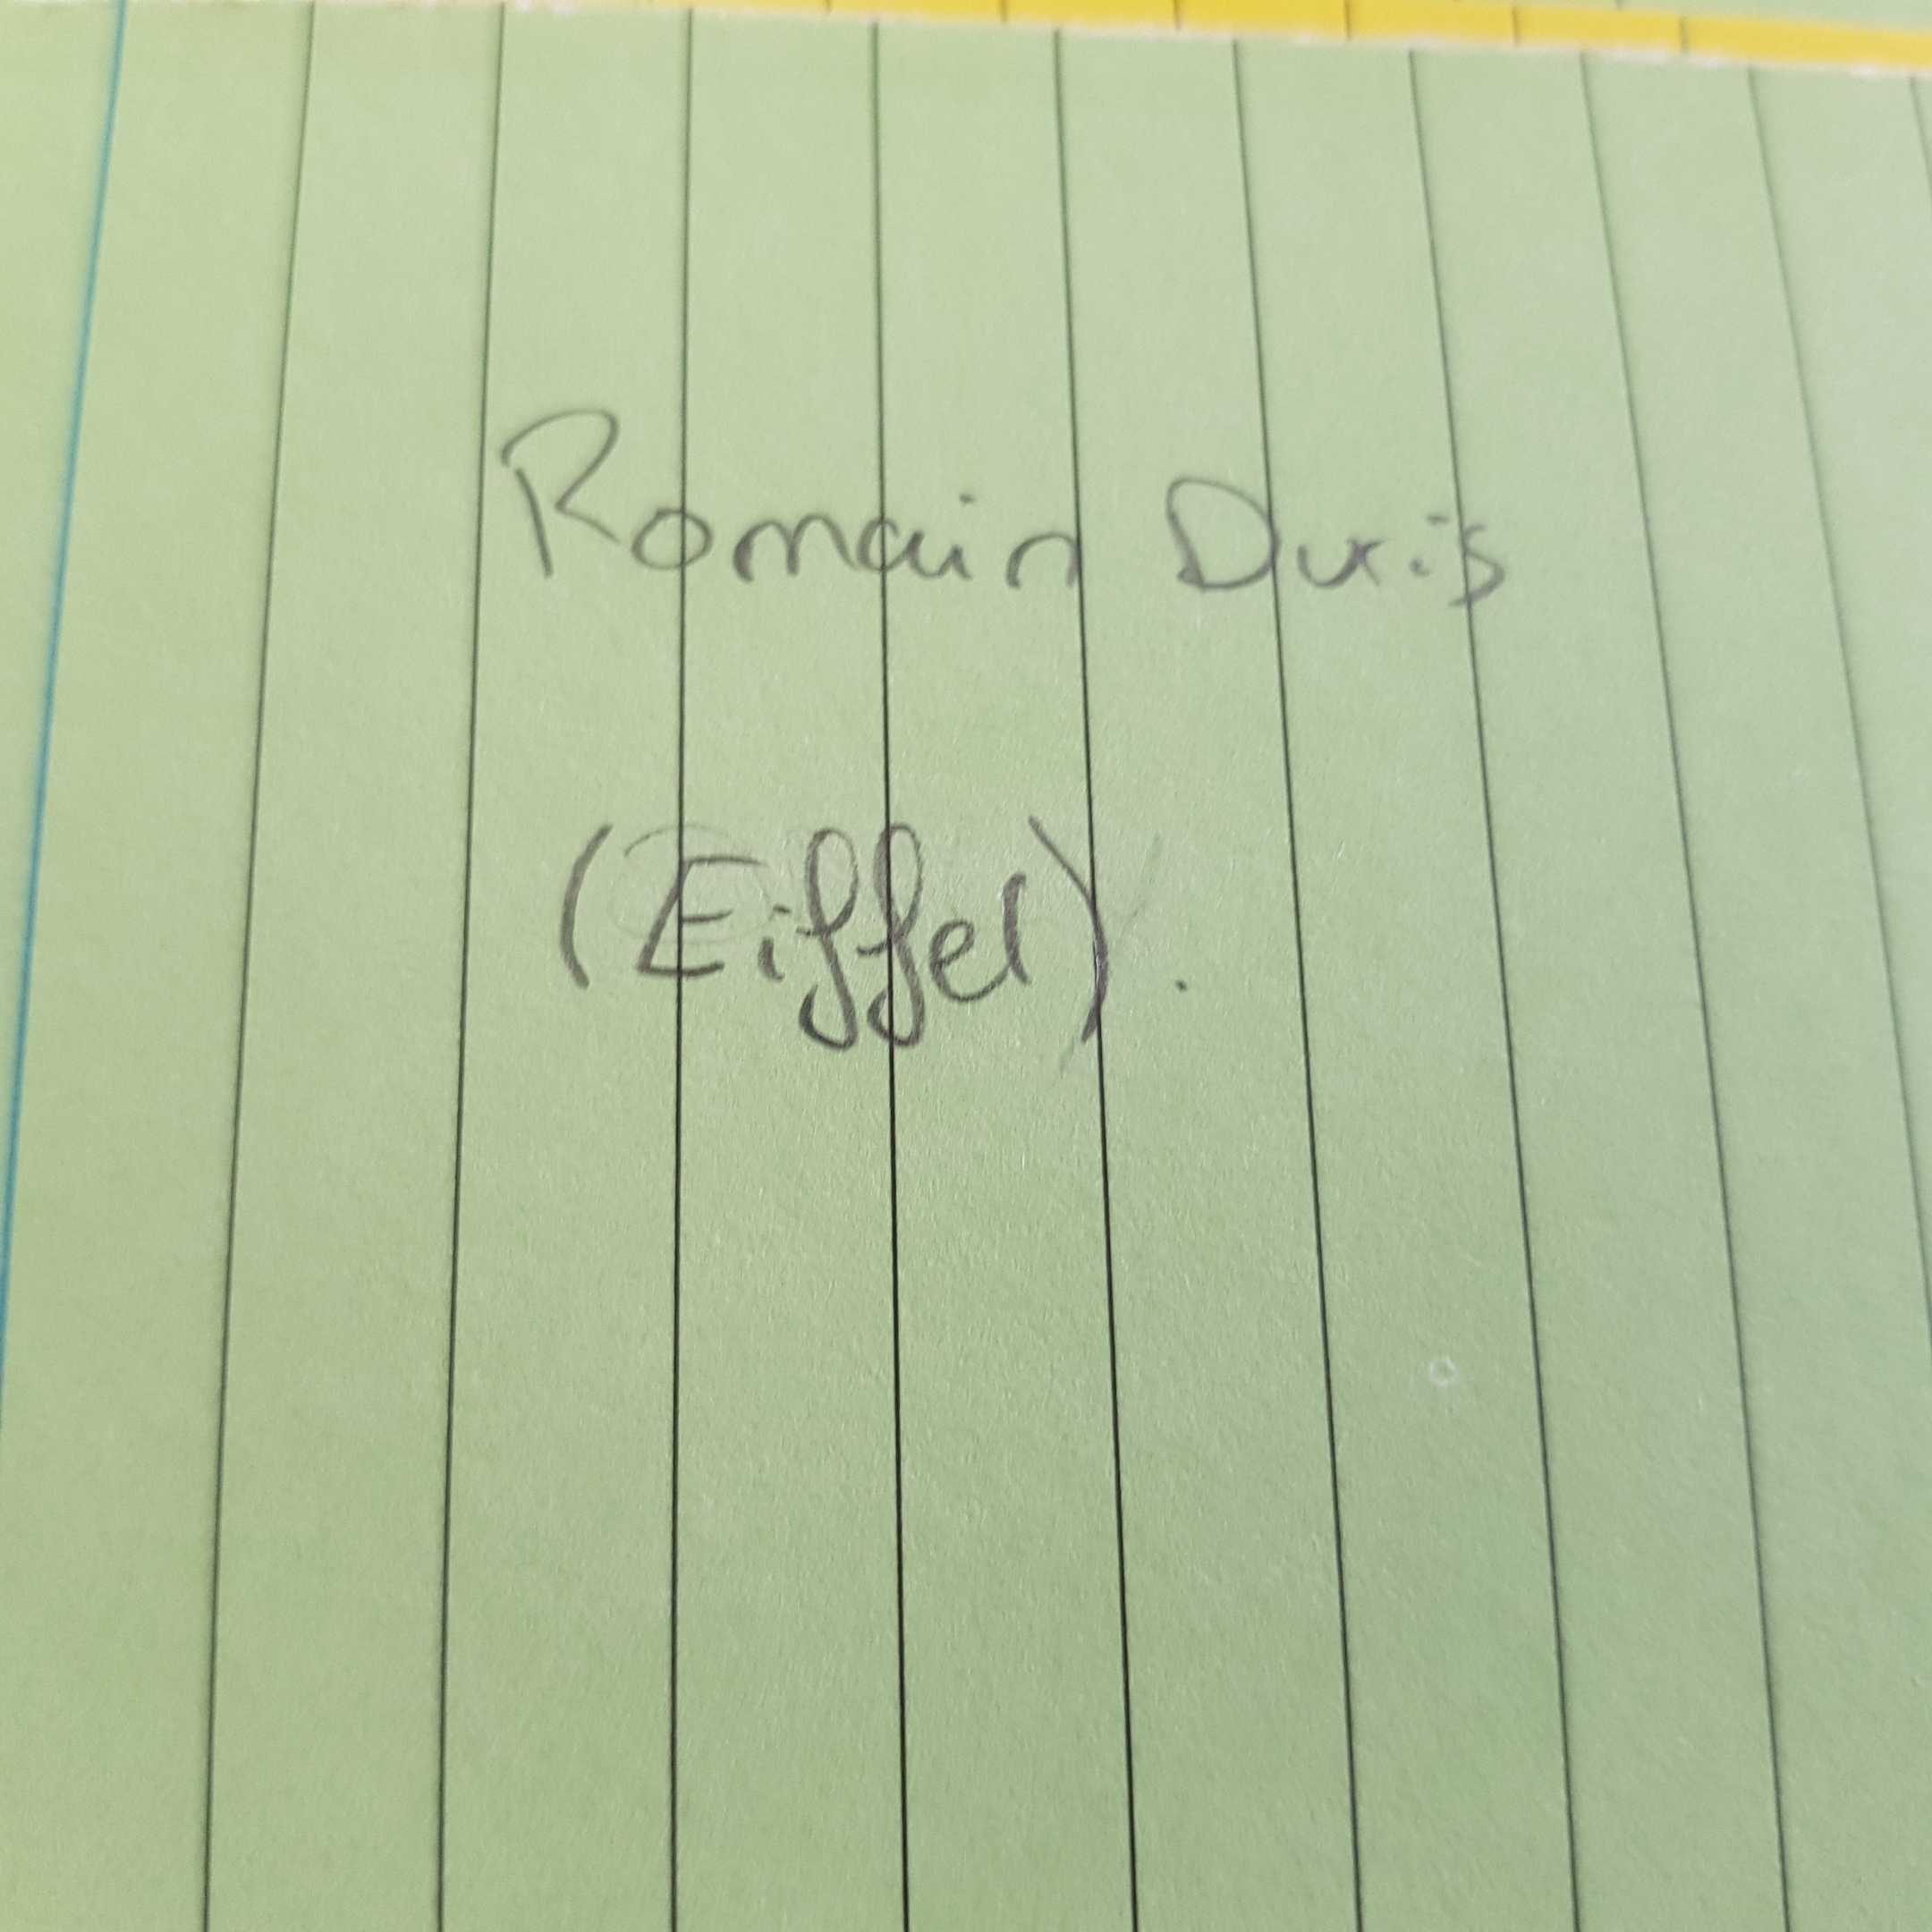 Romain Duris
(Eiffel).